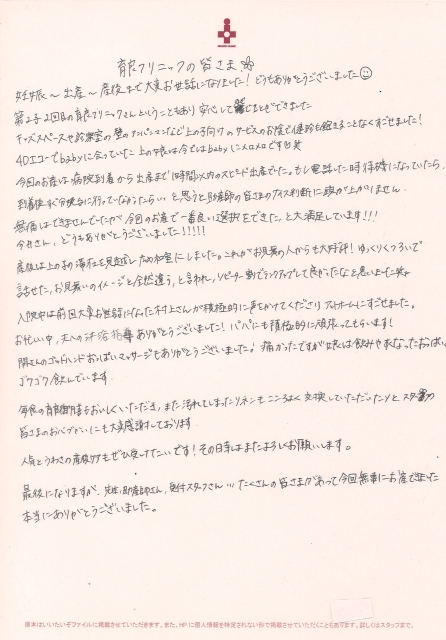 育良クリニックの皆さま
妊娠～出産～産後まで大変お世話になりました！どうもありがとうございました
第2子2回目の育良クリニックさんということもあり安心して すごすことができました
キッズスペースや診察室の壁のアンパンマンなど上の子向けのサービスのお陰で健診も飽きることなくすごせました！
4Dエコーでbabyに会っていた上の娘は今ではbabyにメロメロです
今回のお産は病院到着から出産まで1時間以内のスピード出産でした。もし電話した時待機になっていたら、
到着後すぐ分娩台に行っていなかったら、と思うと助産師の皆さまのナイス判断に頭が上がりません。
無痛はできませんでしたが今回のお産で一番良い選択をできた、と大満足しています!!!
今井さん、どうもありがとうございました!!!!!
産後は上の子の滞在を見越し 個室にしました。これがお見舞の人からも大好評！ゆっくりくつろいで
話せた、お見舞いのイメージと全然違う、と言われ、リピーター割でランクアップして良かったなと思いました
入院中は前回大変お世話になった村上さんが積極的に声をかけてくださりアットホームにすごせました。
お忙しい中、夫への沐浴指導ありがとうございました！パパにも積極的に頑張ってもらいます！
関さんのゴッドハンドおっぱいマッサージもありがとうございました！痛かったですが娘は飲みやすくなったおっぱい
ゴクゴク飲んでいます。
毎食の育良御膳もおいしくいただき、また汚れてしまったリネンもこころよく交換していただいたりと スタッフの
皆さまのおこころづかいにも大変感謝しております
人気とうわさの産後ケアもぜひ使いたいです！その日まではまたよろしくお願いします。
最後になりますが、先生、助産師さん、受付スタッフさん…たくさんの皆さまがあって今回無事にお産できました
本当にありがとうございました。
原本はいいたいぞファイルに掲載させていただきます。また、HPに個人情報を特定されない形で掲載させていただくこともあります。詳しくはスタッフまで。